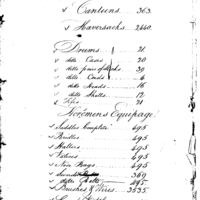 Canteens 363.
Haversacks 2440.
Drums 21
ditto Cases 20
ditto pairs of Sticks 39
ditto Cords 4
ditto Heads 16
ditto Shells 12
Fifes 21
Horsemens Equipage.
Saddles Complete 495
Bridles 495
Halters 495
Valises 495
Nose Bags 495
Swords 369
ditto Belts 495
Brushes & Wires 3535